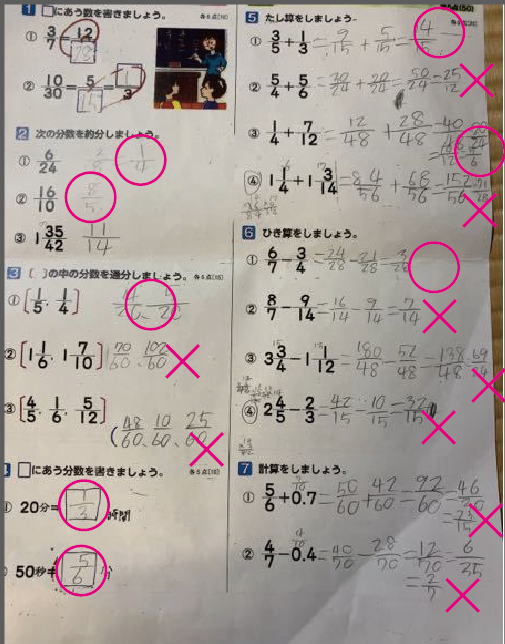 1 □にあう数を書きましょう。
① 3/7 = 12/28
② 10/30 = 5/15 = 1/3
2 次の分数を約分しましょう。
① 6/24 1/4
② 16/10 8/5
③ 1 35/42 11/14
3 〔 〕の中の分数を通分しましょう。 各5点(15)
① [1/5, 1/4]
② [1 1/6, 1 7/10] 70/60、102/60
③ [4/5, 1/6, 5/12]
(48/60、10/60、25/60
□にあう分数を書きましょう。 各5点(10)
20分= 1/3 時間
50秒= 5/6 分
5 たし算をしましょう。
① 3/5 + 1/3 = 9/15 + 5/15 = 4/15
② 5/4 + 5/6 = 30/24 + 20/24 = 50/24 = 25/12
③ 1/4 + 7/12 = 12/48 + 28/48 = 40
④ 1 1/4 + 1 3/14 = 84/56 + 68/56 = 152/56
6 ひき算をしましょう。
① 6/7 - 3/4 = 24/28 - 21/28 = 3/28
② 8/7 - 9/14 = 16/14 - 9/14 = 7/14
③ 3 3/4 - 1 1/12 = 180/48 - 52/48 = 138/48 = 69/34
④ 2 4/5 - 2/3 = 42/15 - 10/15 = 32/15
7 計算をしましょう。
① 5/6 + 0.7 = 50/60 + 42/60 = 92/60 = 46/30
= 23/15
② 4/7 - 0.4 = 40/70 - 28/70 = 12/70 = 6/35
= 2/7